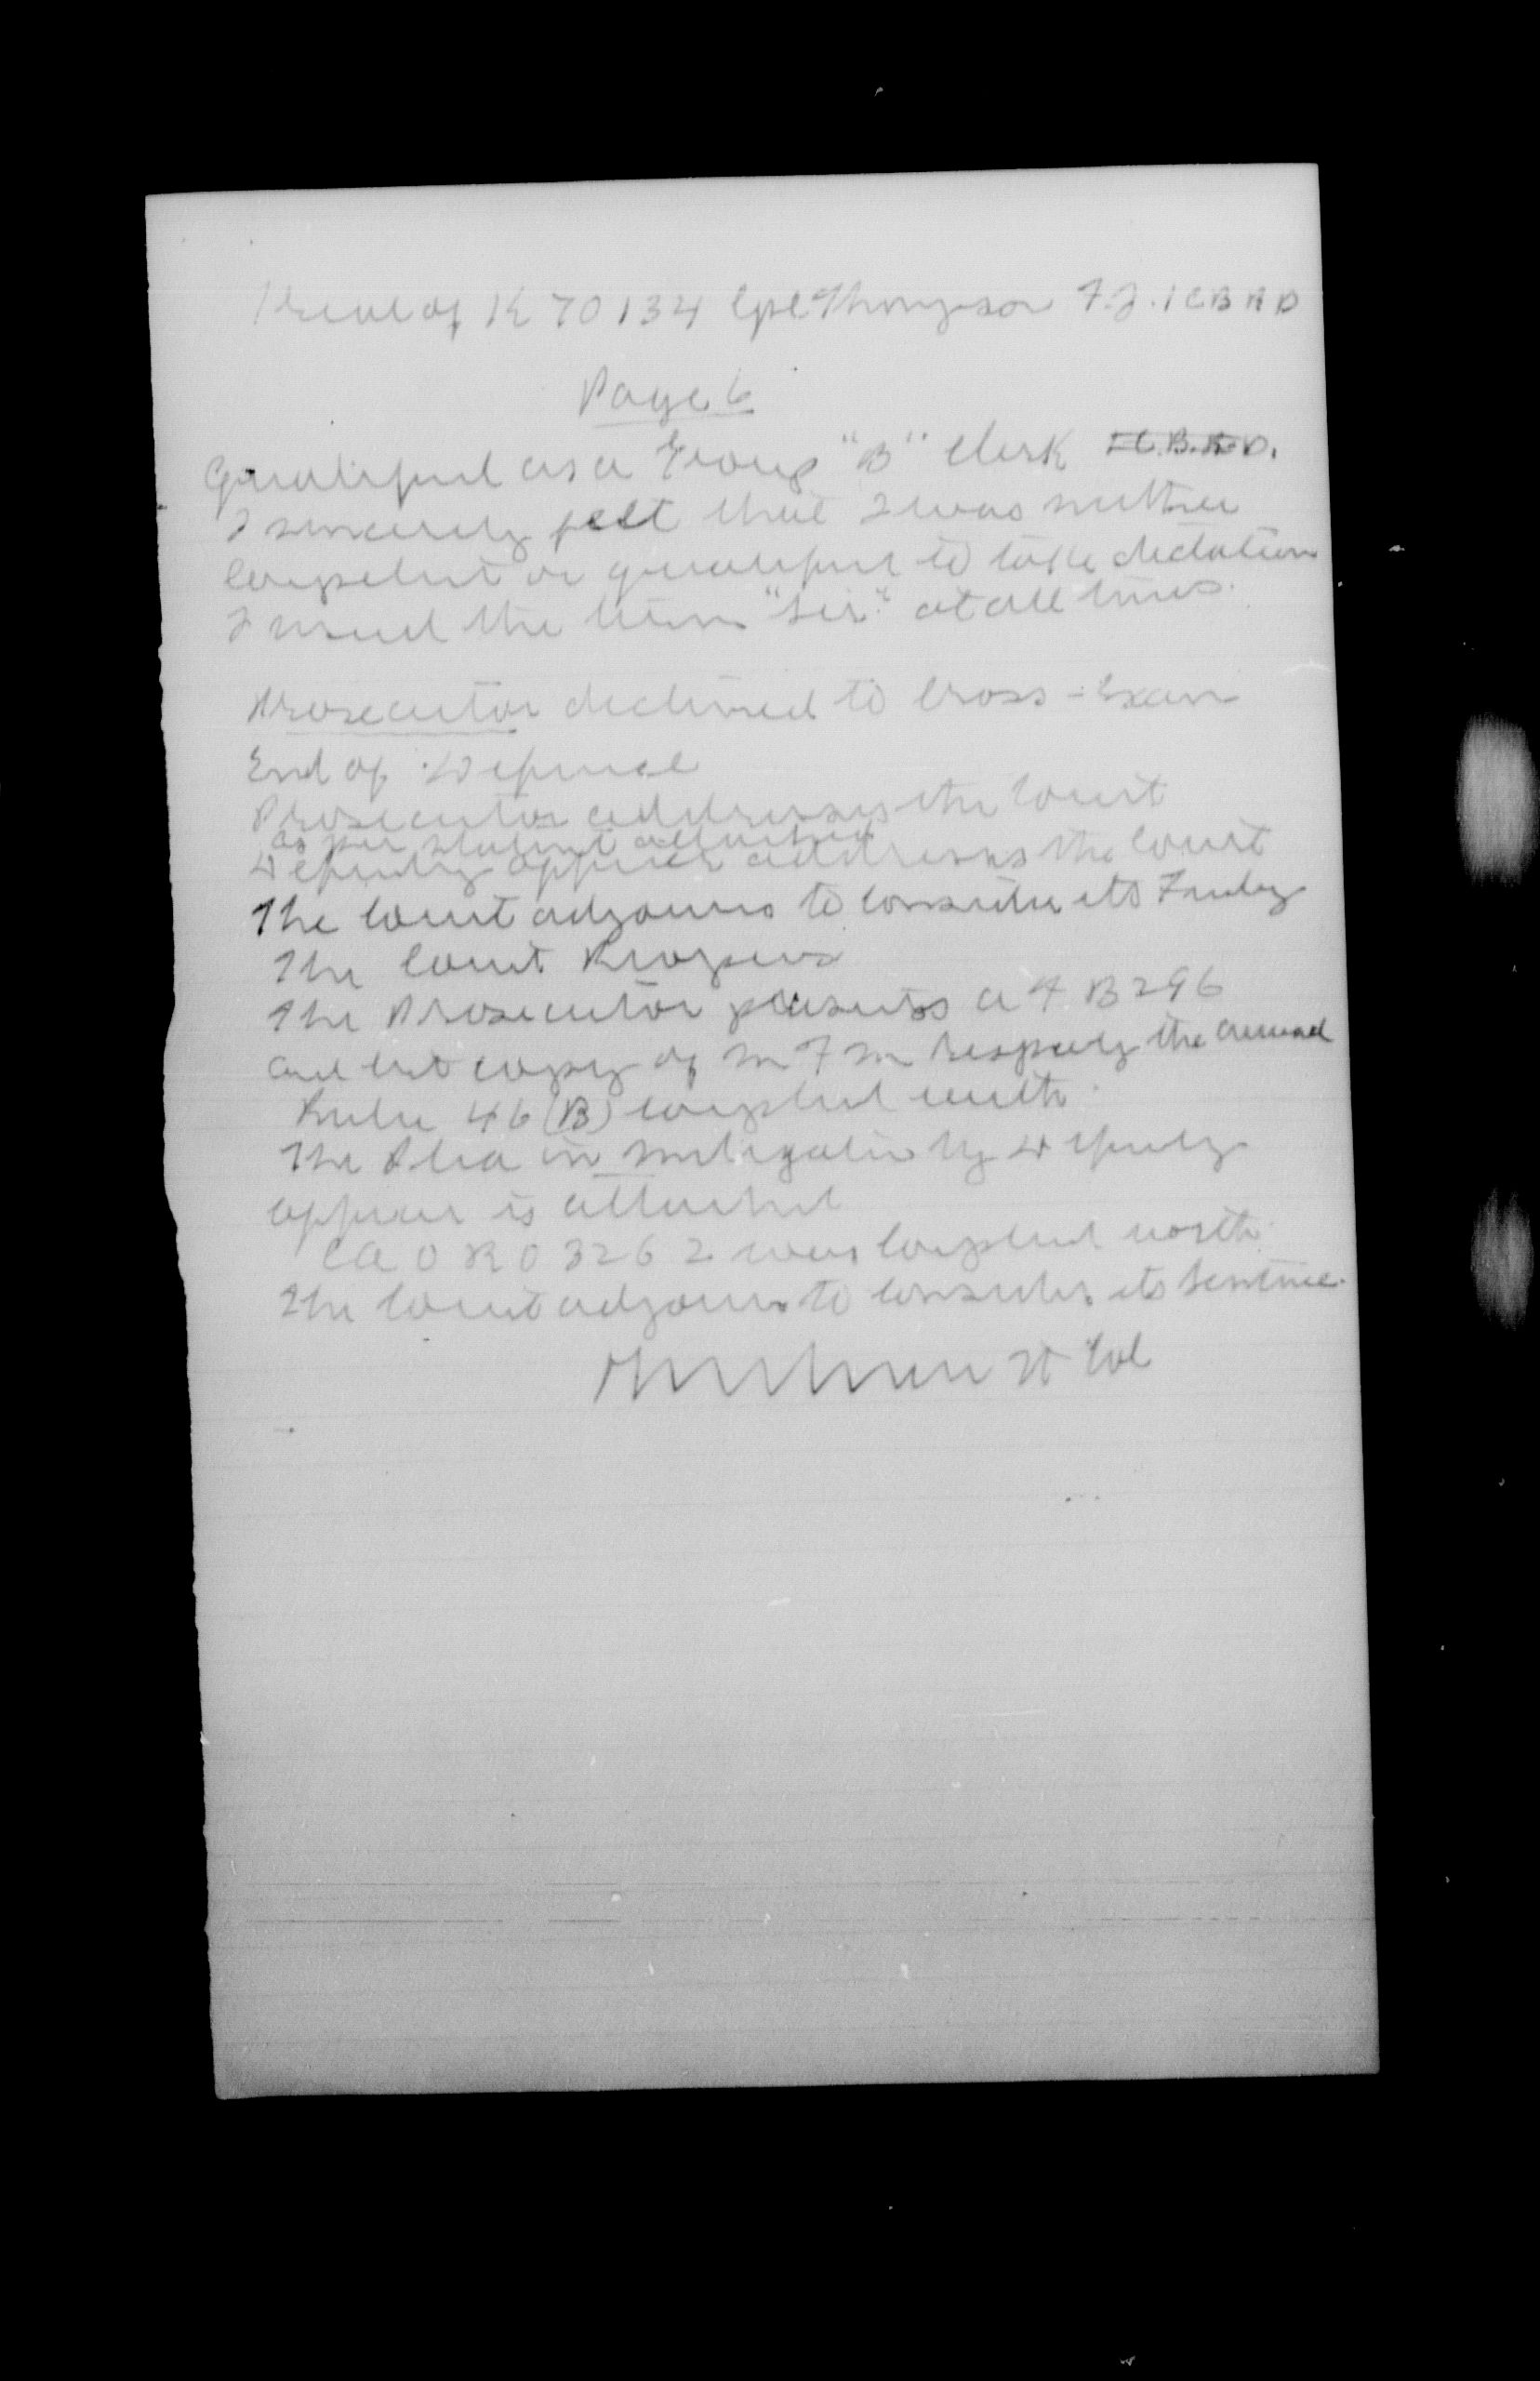 Trial of K 70134 Cpl Thompson F.J. 1 CBRD
Page 6
Qualified as a Group "B" Clerk 1 C.B.R.D.
I sincerely felt that I was neither
competent or qualified to take dictation
I used the term "Sir" at all times.
Prosecutor declined to Cross-Exam
End of Defence
Prosecutor addresses the Court
as per statement attached
Defending officer addresses the Court
The Court adjourns to consider its Finding
The Court Reopens
The Prosecutor presents a F B 296
and cert copy of M F M respecting the accused
Rule 46 (B) complied with
The Plea in Mitigation by Defending
officer is attached
CAO RO 3262 was complied with
The Court adjourns to consider its Sentence.
Lt Col